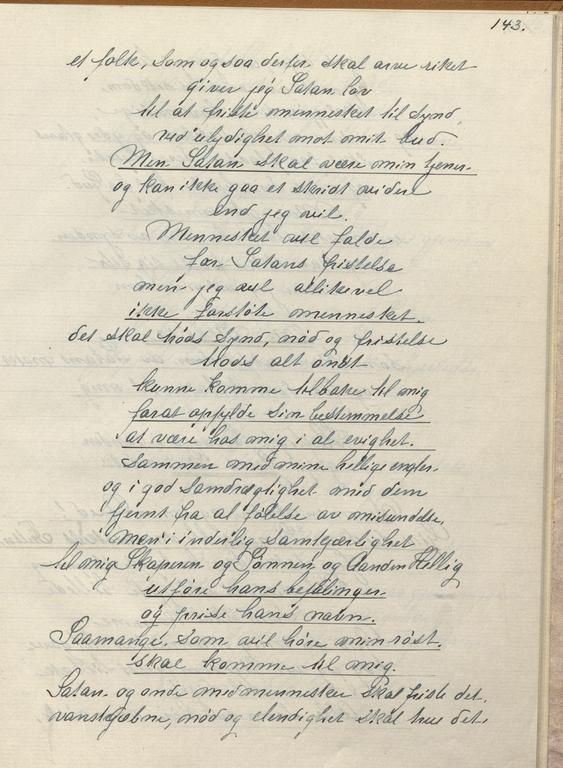 143.
et folk, som ogsaa derfor skal arve riket
giver jeg Satan lov
til at friste mennesket til synd,
ved ulydighet mot mit bud.
Men Satan skal være min tjener
og kan ikke gaa et skridt videre
end jeg vil.
Mennesket vil falde
for Satans fristelse
men jeg vil allikevel
ikke forstøte mennesket.
det skal trods synd, nød og fristelse
trods alt ondt
kunne komme tilbake til mig
forat opfylde sin bestemmelse
at være hos mig i al evighet.
Sammen med mine hellige engler
og i god samdrægtighet med dem
fjernt fra al følelse av misundelse,
men i inderlig samkjærlighet
til mig Skaperen og Sønnen og Aanden Hellig
utføre hans befalinger
og prise hans navn.
Saamange, som vil høre min røst.
skal komme til mig.
Satan og onde medmennesker skal friste det.
vanskjæbne, nød og elendighet skal true det.